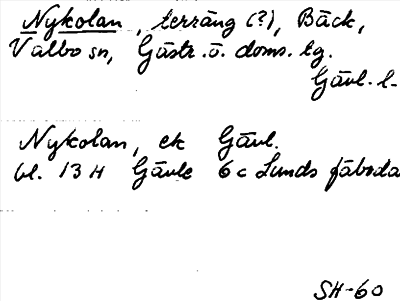 Nykolan, terräng (?), Bäck,
Valbo sn, Gästr. ö. doms. tg.
Gävl. l.
Nykolan, ek Gävl.
bl. 13 H Gävle 6 c Lunds fäboda
SH-60